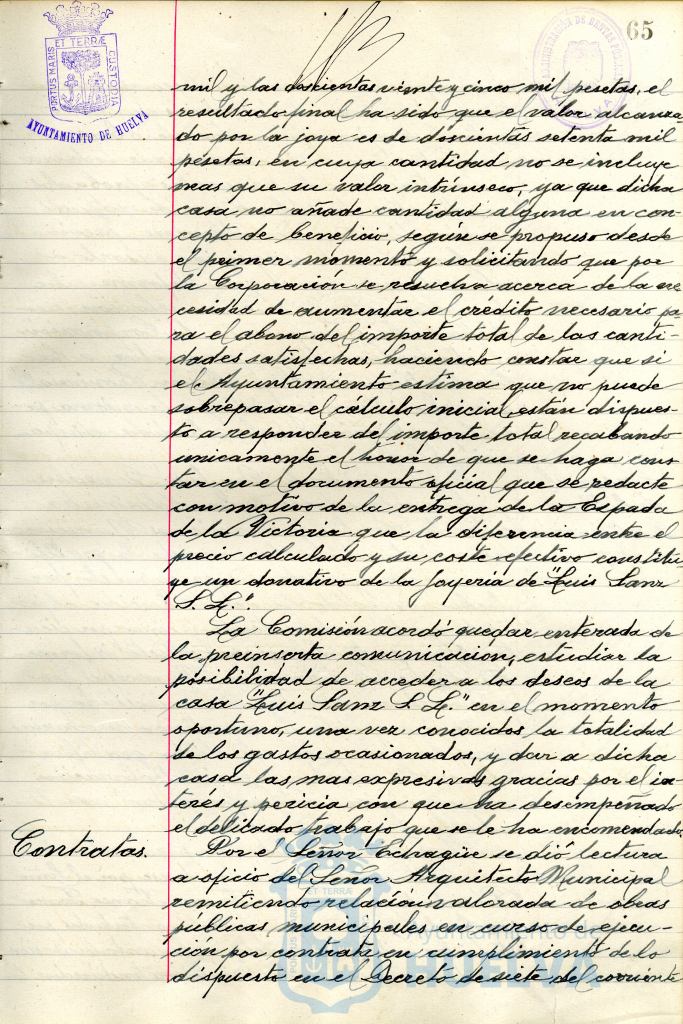 65
PORTUS MARIS ET TERRÆ CUSTODIA
AYUNTAMIENTO DE HUELVA
mil y las doscientas veinte y cinco mil pesetas, el
resultado final ha sido que el valor alcanza
do por la joya es de doscientas setenta mil
pesetas, en cuya cantidad no se incluye
mas que su valor intrínseco, ya que dicha
casa no añade cantidad alguna en con-
cepto de beneficio, según se propuso desde
el primer momento y solicitando que por
la Corporación se resuelva acerca de la ne
cesidad de aumentar el crédito necesario pa
ra el abono del importe total de las canti-
dades satisfechas, haciendo constar que si
el Ayuntamiento estima que no puede
sobrepasar el cálculo inicial, están dispues-
to a responder del importe total recabando
unicamente el honor de que se haga cons
tar en el documento oficial que se redacte
con motivo de la entrega de la Espada
de la Victoria que la diferencia entre el
precio calculado y su coste efectivo constitu
ye un donativo de la Joyería de "Luis Sanz
S. L.".
La Comisión acordó quedar enterada de
la preinserta comunicación, estudiar la
posibilidad de acceder a los deseos de la
casa "Luis Sanz S. L." en el momento
oportuno, una vez conocidos la totalidad
de los gastos ocasionados, y dar a dicha
casa las mas expresivas gracias por el in
terés y pericia con que ha desempeñado
el delicado trabajo que se le ha encomendado.
Contratas.
Por el Señor Echagüe se dió lectura
a oficio del Señor Arquitecto Municipal
remitiendo relación valorada de obras
públicas municipales en curso de ejecu-
ción por contrata en cumplimiento de lo
dispuesto en el Decreto de siete del corriente
Ayuntamiento de
HUELVA